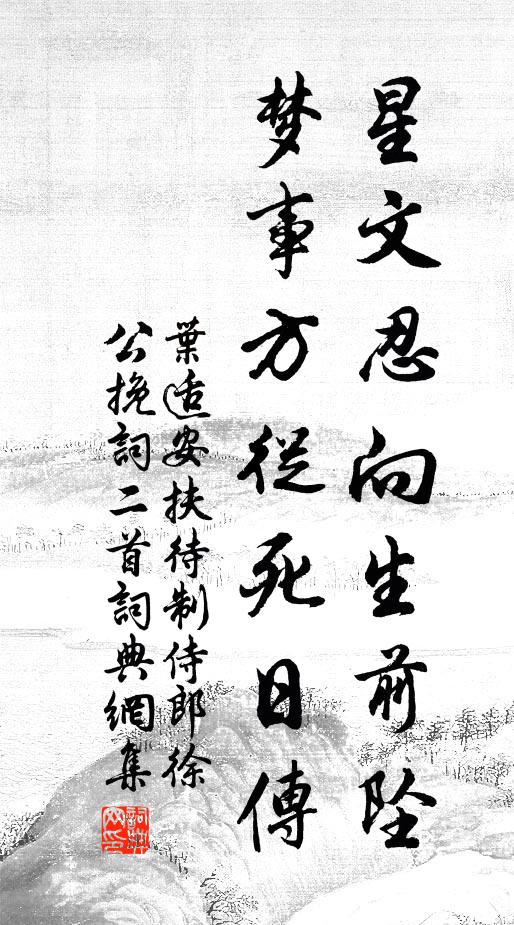 星文忍向生前坠
梦事方從死日傳
葉适安扶待制侍郎徐
公挽詞二首詞典網集
詞典网印